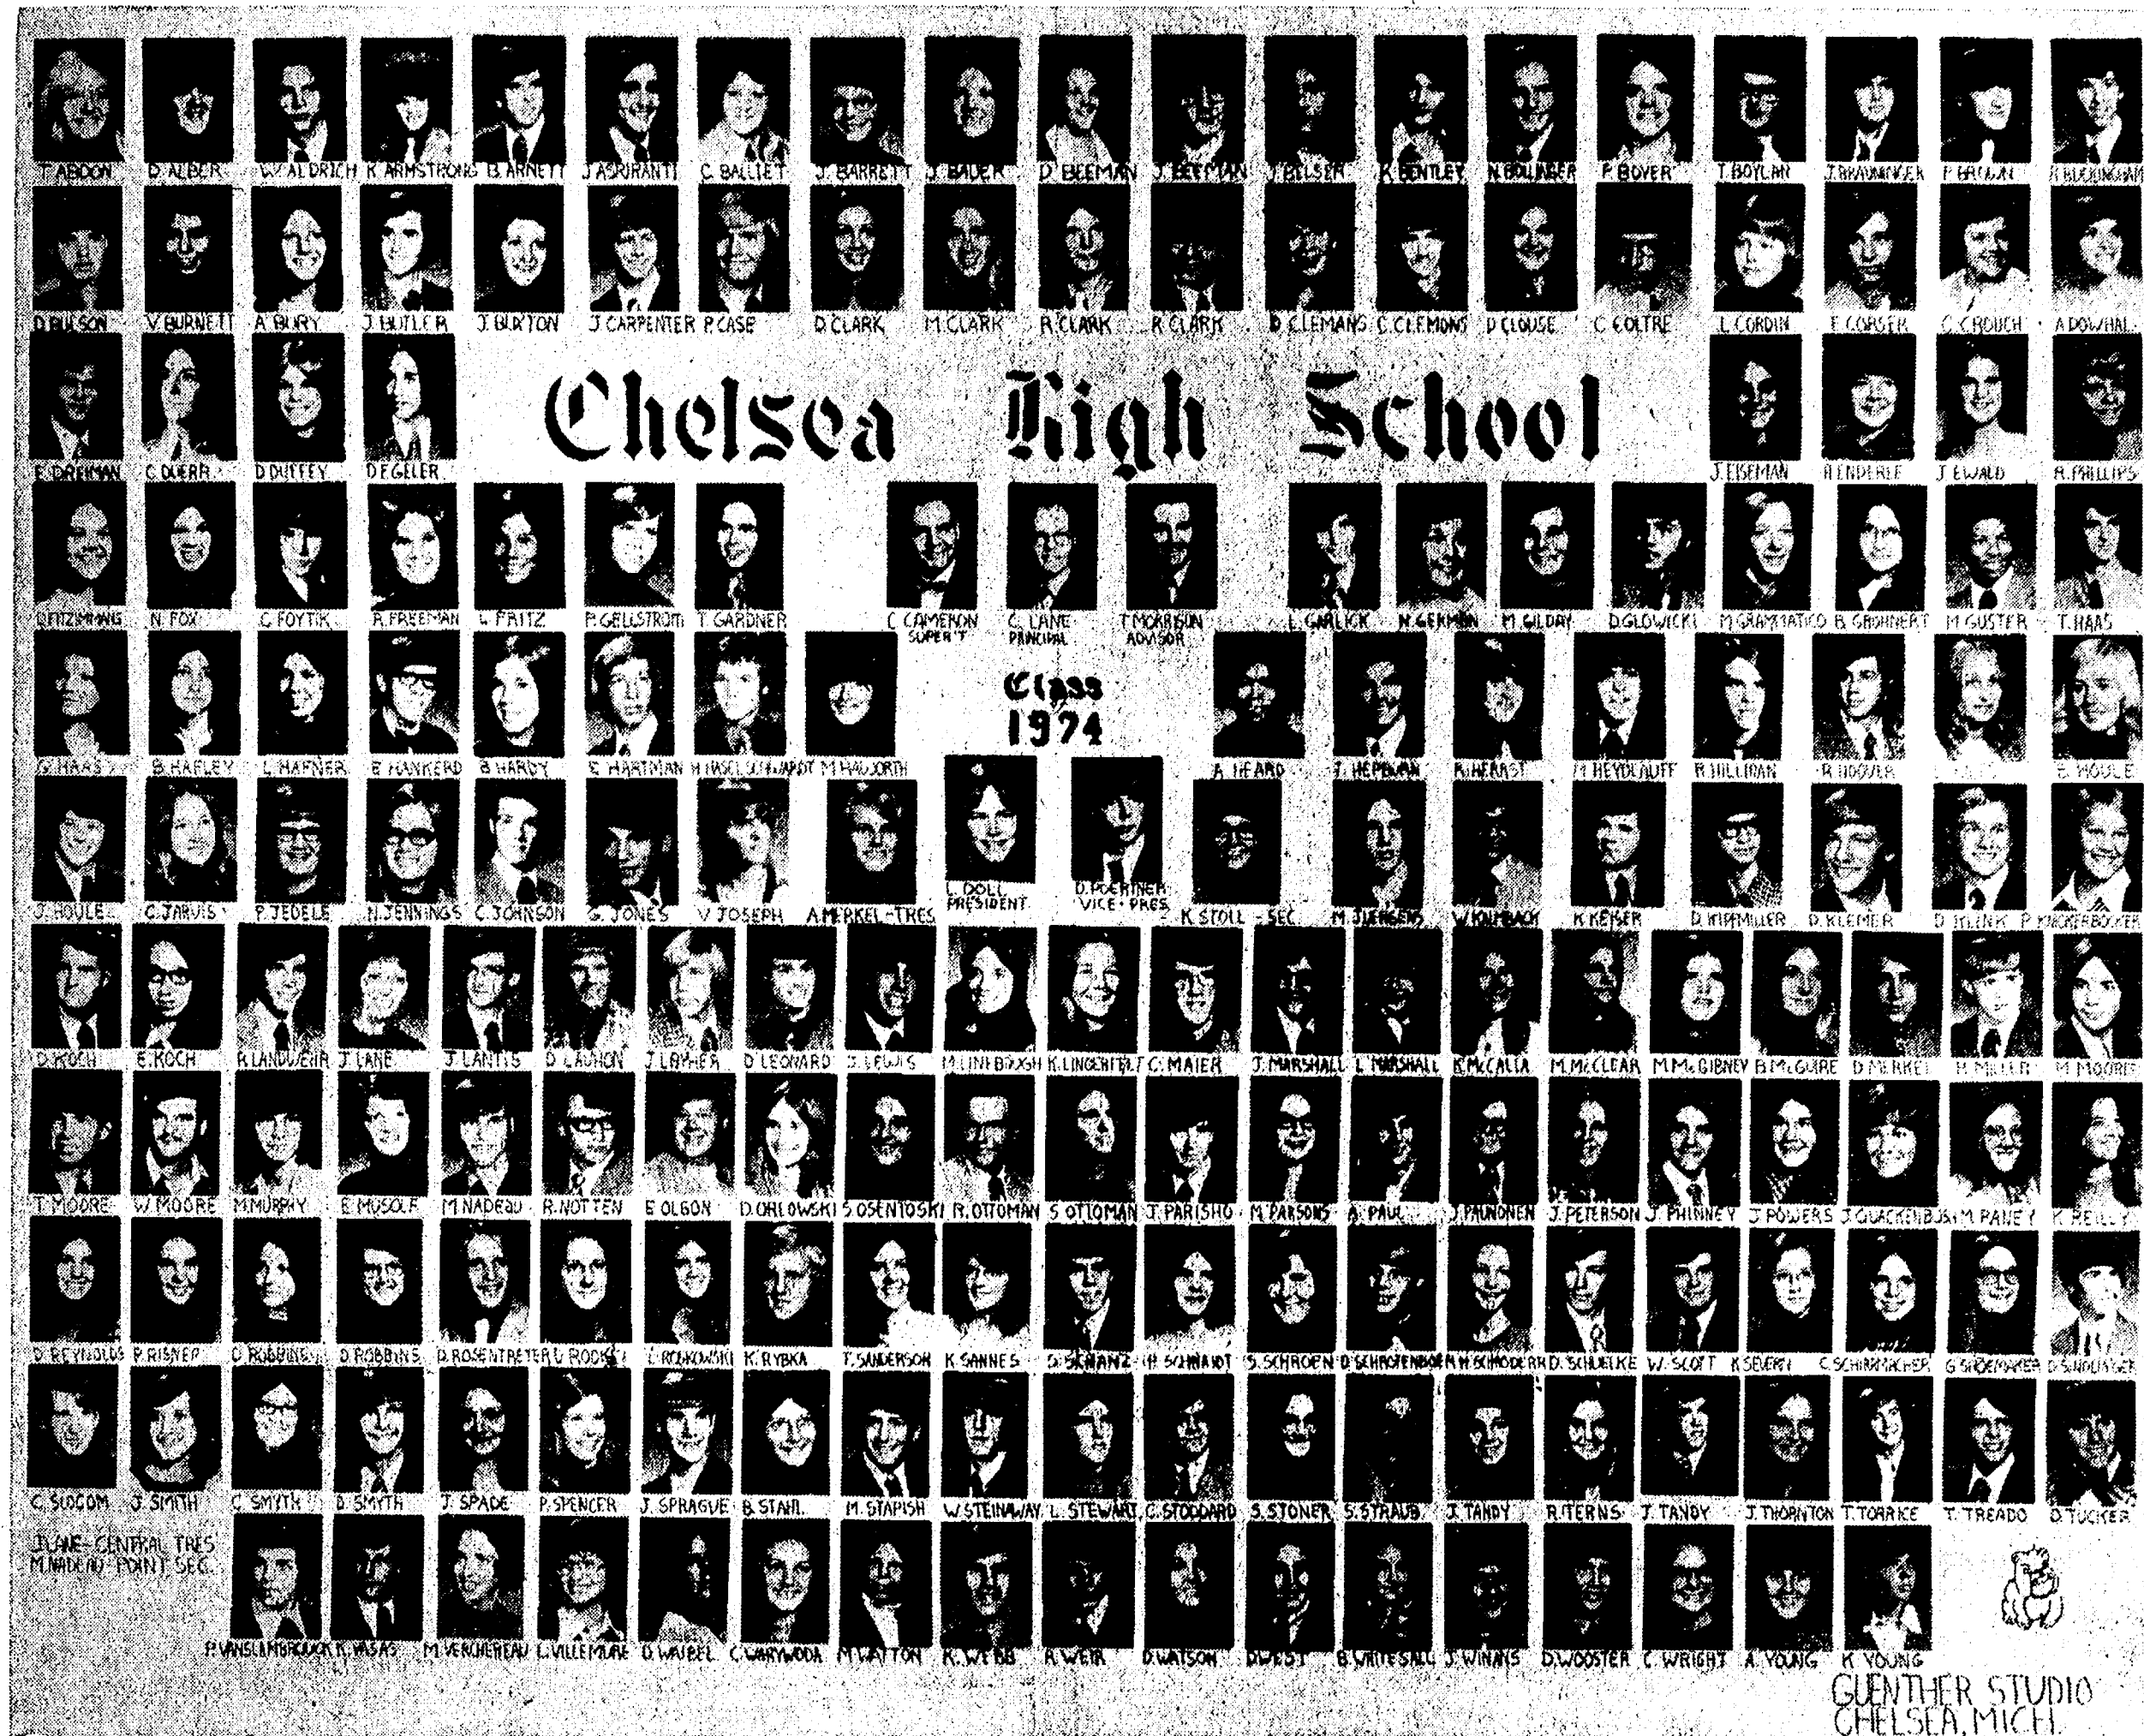 T. ABDON D. ALBER W. ALDRICH K. ARMSTRONG B. ARNETT J. ASPIRANTI C. BALLIET J. BARRETT J. BAUER D. BEEMAN J. BEEMAN J. BELSER K. BENTLEY N. BOLLINGER P. BOYER T. BOYLAN J. BRAUNINGER P. BROWN R. BUCKINGHAM
D. BULSON V. BURNETT A. BURY J. BUTLER J. BUXTON J. CARPENTER P. CASE D. CLARK M. CLARK R. CLARK R. CLARK D. CLEMANS C. CLEMONS D. CLOUSE C. COLTRE L. CORDIN F. CORSER C. CROUCH A. DOWHAL
Chelsea High School
E. DREHMAN C. DUERR D. DUFFEY D. EGELER J. EISEMAN R. ENDERLE J. EWALD R. PHILLIPS
N. FOX C. FOYTIK R. FREEMAN L. FRITZ P. GELLSTROM T. GARDNER C. CAMERON C. LANE T. MORRISON L. GARLICK N. GERMAN M. GILDAY D. GLOWICKI M. GRAMMATICO B. GROHNERT M. GUSTER T. HAAS
SUPER'T PRINCIPAL ADVISOR
Class
1974
G. HAAS B. HAFLEY L. HAFNER E. HANKERD B. HARDY E. HARTMAN H. HASELSCHWARDT M. HAWORTH A. HEARD J. HEPBURN K. HERRST M. HEYDLAUFF R. HILLMAN R. HOOVER E. HOULE
J. HOULE C. JARVIS P. JEDELE N. JENNINGS C. JOHNSON G. JONES V. JOSEPH A. MERKEL-TRES L. DOLL D. POERTNER K. STOLL - SEC. M. JUERGENS W. KALMBACH K. KEISER D. KIPFMILLER D. KLEMER D. KLINK P. KNICKERBOCKER
PRESIDENT VICE-PRES
D. KOCH E. KOCH R. LANDWEHR J. LANE J. LANTIS D. LAUHON J. LAYHER D. LEONARD J. LEWIS M. LINEBAUGH K. LINGERFELT C. MAIER J. MARSHALL L. MARSHALL K. McCALLA M. McCLEAR M. McGIBNEY B. McGUIRE D. MERKEL R. MILLER M. MOORE
T. MOORE W. MOORE M. MURPHY E. MUSOLF M. NADEAU R. NOTTEN E. OLSON D. ORLOWSKI S. OSENTOSKI R. OTTOMAN S. OTTOMAN J. PARISHO M. PARSONS A. PAUL J. PAUNONEN J. PETERSON J. PHINNEY J. POWERS J. QUACKENBUSH M. RANEY K. REILLY
D. REYNOLDS P. RISNER D. ROBBINS D. ROBBINS D. ROSENTRETER L. ROOKE L. ROSKOWSKI K. RYBKA T. SANDERSON K. SANNES D. SCHANZ H. SCHMIDT S. SCHROEN D. SCHROTENBOER H. SCHRODERR D. SCHUELKE W. SCOTT K. SEVERN C. SCHIRRMACHER G. SHOEMAKER
C. SLOCOM J. SMITH C. SMYTH D. SMYTH J. SPADE P. SPENCER J. SPRAGUE B. STAHL M. STAPISH W. STEINAWAY L. STEWART C. STODDARD S. STONER S. STRAUB J. TANDY R. TERNS J. TANDY J. THORNTON T. TORRICE T. TREADO D. TUCKER
J. LANE - CENTRAL TRES
M. NADEAU - POINT SEC.
P. VANSLAMBROUCK K. VASAS M. VERCHEREAU L. VILLEMURE D. WAIBEL C. WARYWODA M. WATTON K. WEBB R. WEIR D. WATSON D. WEST B. WHITESALL J. WINANS D. WOOSTER C. WRIGHT A. YOUNG K. YOUNG
GUENTHER STUDIO
CHELSEA, MICH.